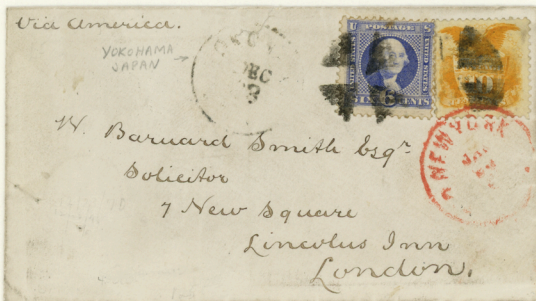 Via America.
YOKOHAMA
JAPAN
DEC
U S
POSTAGE
UNITED STATES
SIX CENTS
NEW YORK
W. Barnard Smith Esqr
Solicitor
7 New Square
Lincolns Inn
London.